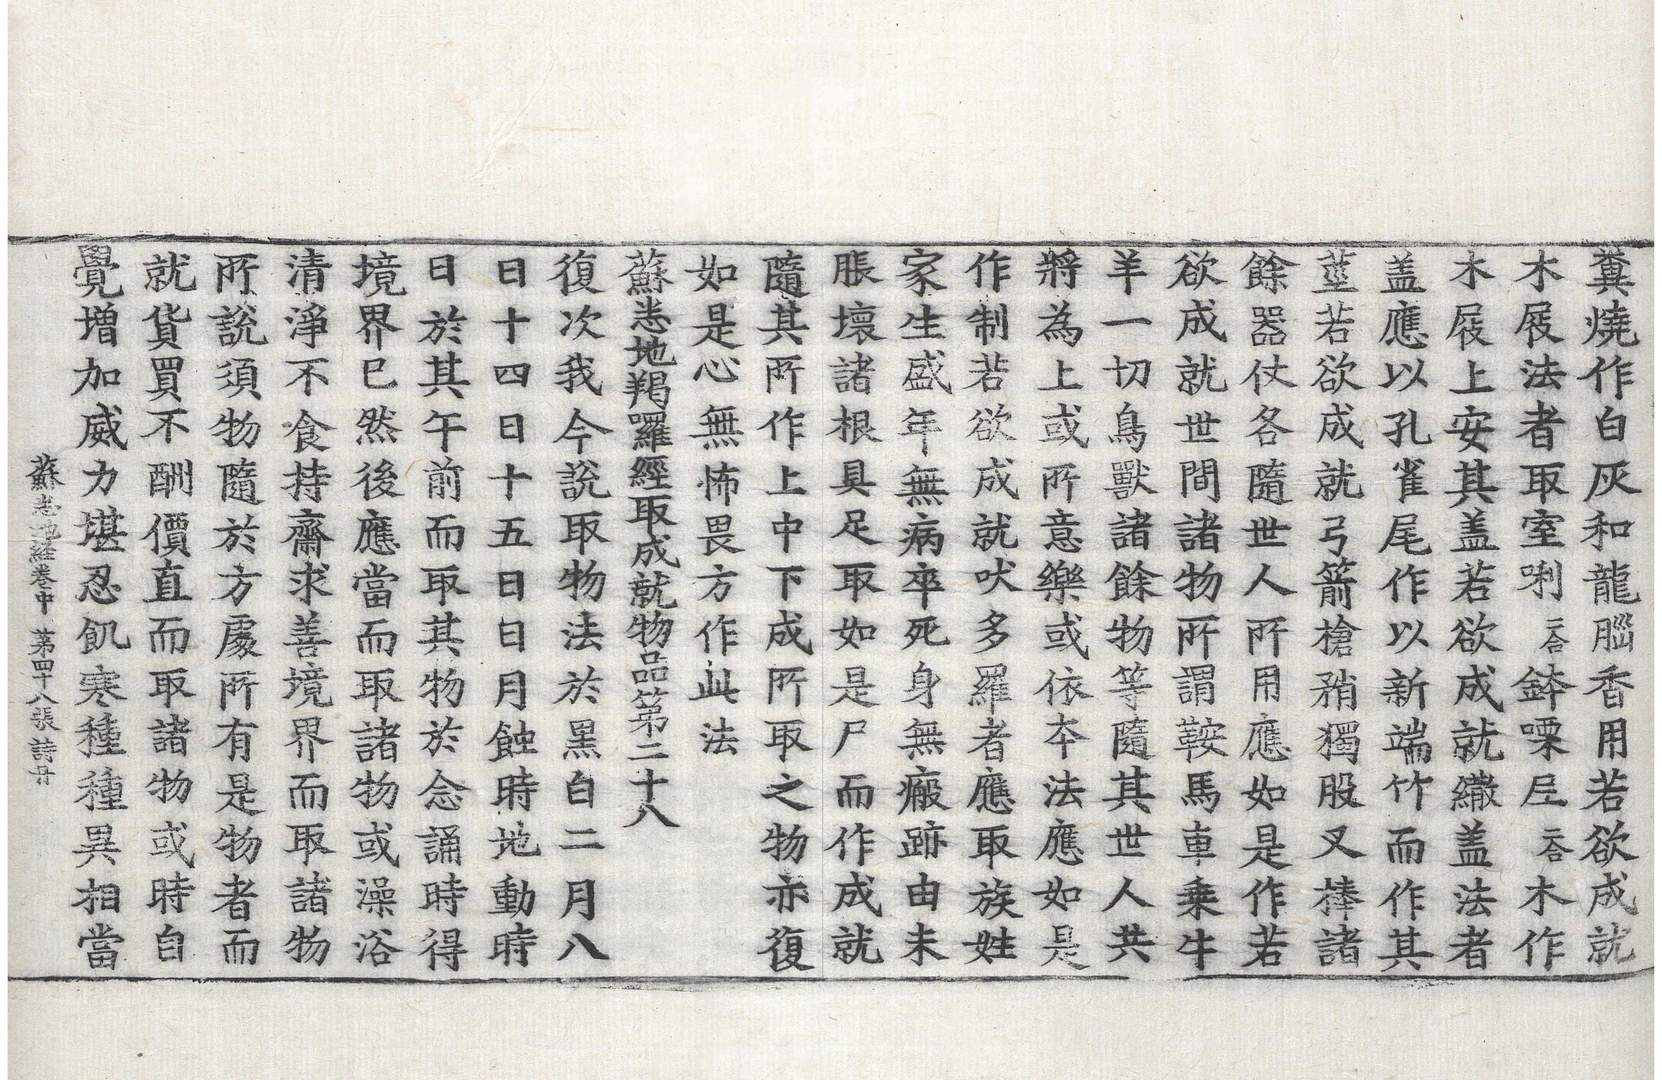 糞燒作白灰和龍腦香用若欲成就
木屐法者取室唎二合鉢㗚二合木作
木屐上安其盖若欲成就繖盖法者
盖應以孔雀尾作以新端竹而作其
莖若欲成就弓箭槍矟獨股叉棒諸
餘器仗各隨世人所用應如是作若
欲成就世間諸物所謂鞍馬車乗牛
羊一切鳥獸諸餘物等隨其世人共
將為上或所意樂或依夲法應如是
作制若欲成就吠多羅者應取族姓
家生盛年無病卒死身無瘢跡由未
脹壞諸根具足取如是尸而作成就
隨其所作上中下成所取之物亦復
如是心無怖畏方作此法
蘇悉地羯囉經取成就物品第二十八
復次我今說取物法於黑白二月八
日十四日十五日日月蝕時地動時
日於其午前而取其物於念誦時得
境界已然後應當而取諸物或澡浴
清淨不食持齋求善境界而取諸物
所說須物隨於方處所有是物者而
就貨買不酬價直而取諸物或時自
覺増加威力堪忍飢寒種種異相當
蘇悉地経巻中　苐四十八張　詩